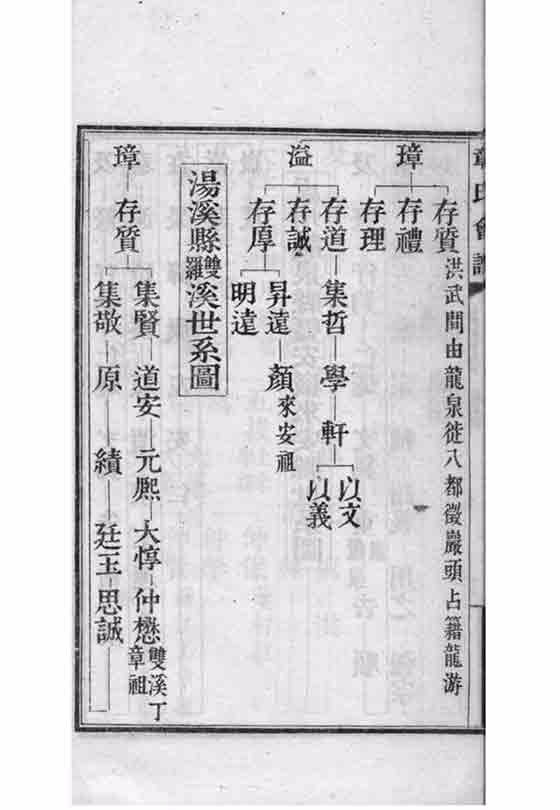 章氏會譜
璋
存質 洪武間由龍泉徙八都徵巖頭占籍龍游
存禮
存理
溢
存道 集哲 學 軒
以文
以義
存誠
存厚
昇遠 顏 來安祖
明遠
湯溪縣雙羅溪世系圖
璋 存質
集賢 道安 元熈 大惇 仲懋 雙溪丁章祖
集敬 原 績 廷玉 思誠